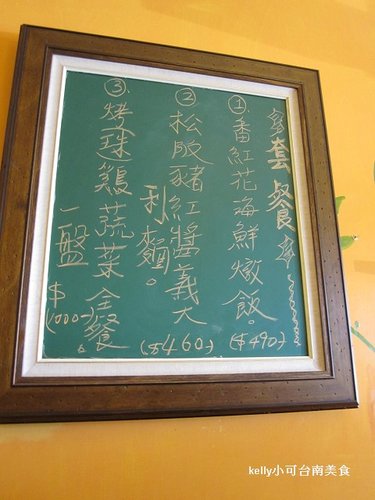 套餐
①番紅花海鮮燉飯。
($490-)
②松阪豬紅醬義大
利麵。
($460-)
③烤珠雞蔬菜全餐
一盤
$
(1000-)。
kelly小可台南美食